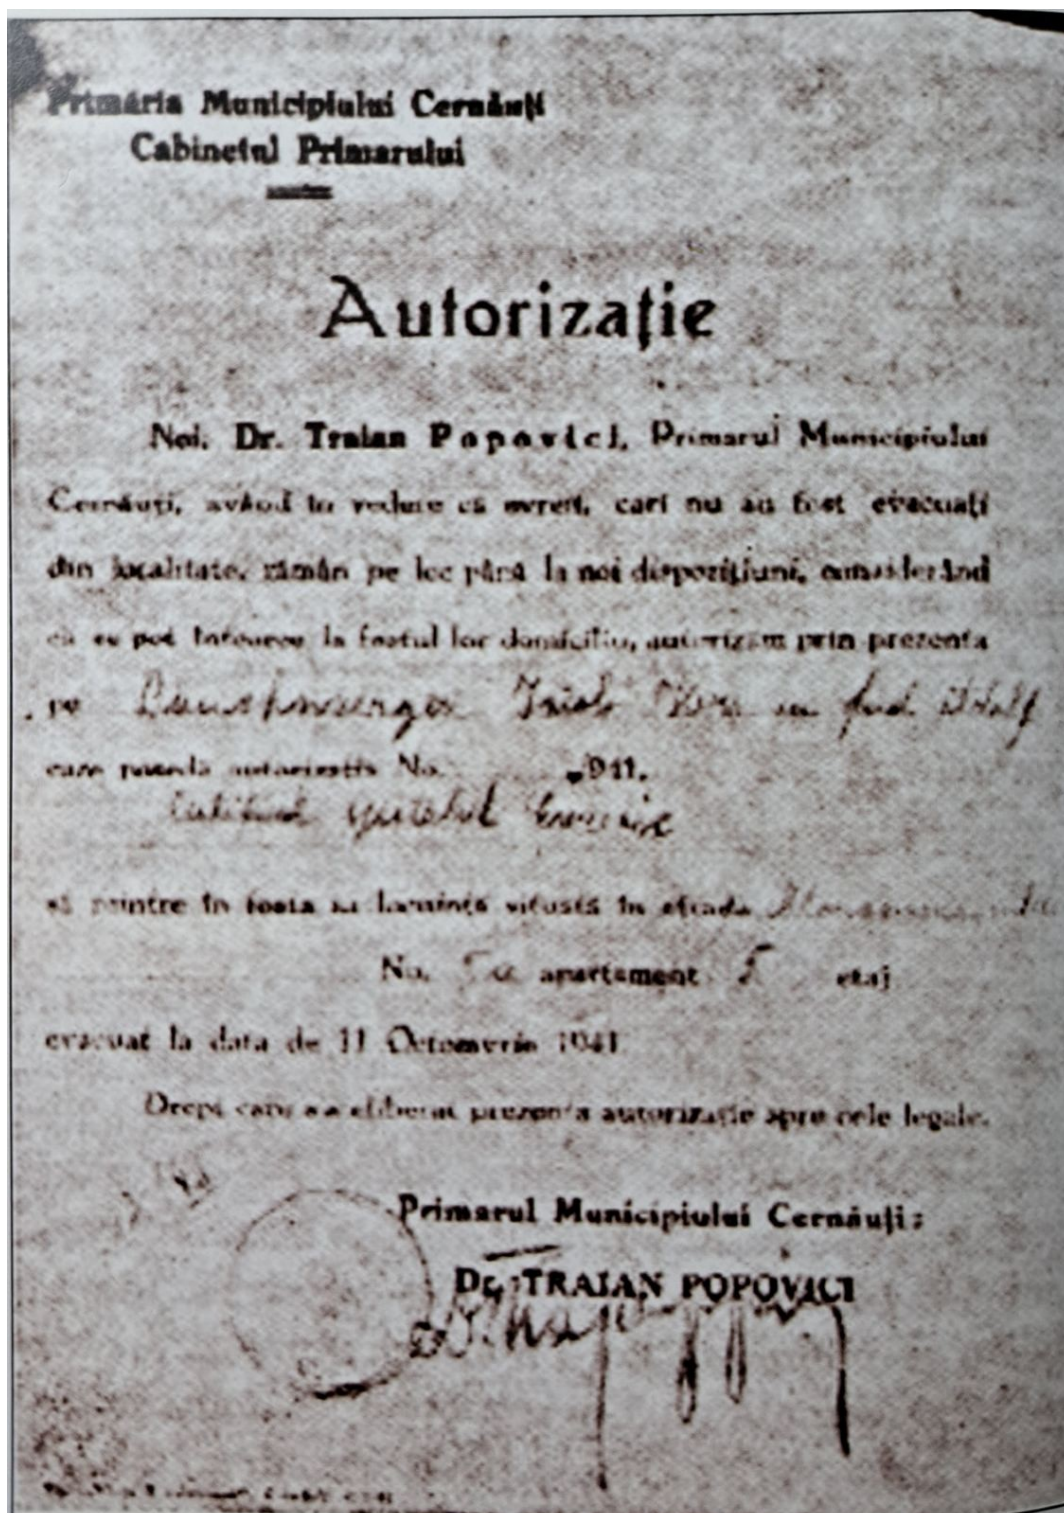 Primăria Municipiului Cernăuți
Cabinetul Primarului
Autorizație
Noi, Dr. Traian Popovici, Primarul Municipiului
Cernăuți, având în vedere că evreii, cari nu au fost evacuați
din localitate, rămân pe loc până la noi dispozițiuni, considerând
că se pot întoarce la fostul lor domiciliu, autorizăm prin prezenta
pe
care posedă autorizația No. 941.
să reintre în fosta sa locuință situată în strada
No. apartament etaj
evacuat la data de 11 Octomvrie 1941
Drept care s'a eliberat prezenta autorizație spre cele legale.
Primarul Municipiului Cernăuți:
Dr. TRAIAN POPOVICI